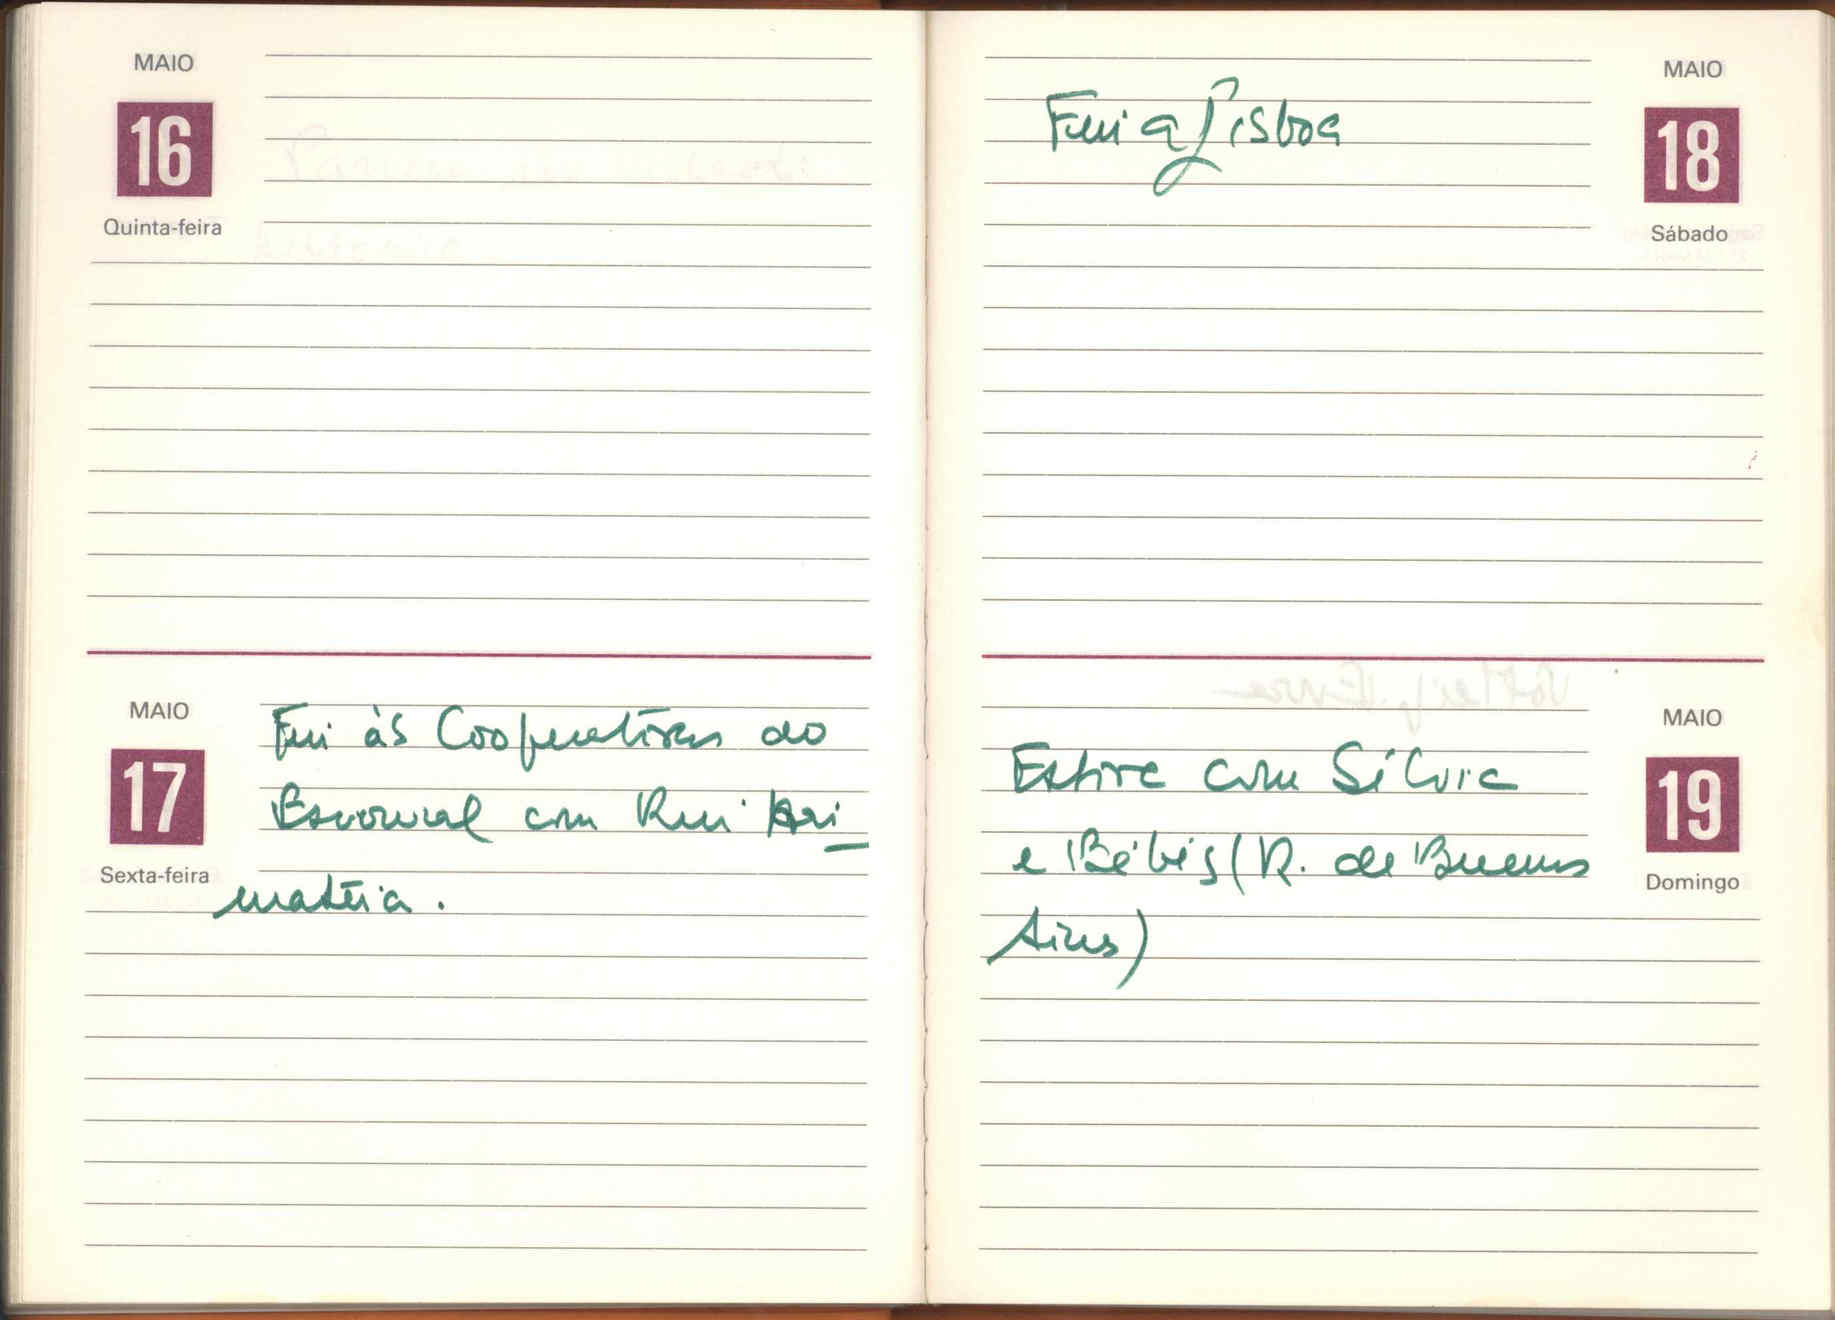 MAIO
16
Quinta-feira
MAIO
17
Sexta-feira
Fui às Cooperativas do
Escoural com Rui
matéia.
MAIO
18
Sábado
Fui a Lisboa
MAIO
19
Domingo
Estive com Sílvia
e Bébés (R. de Buenos
Aires)